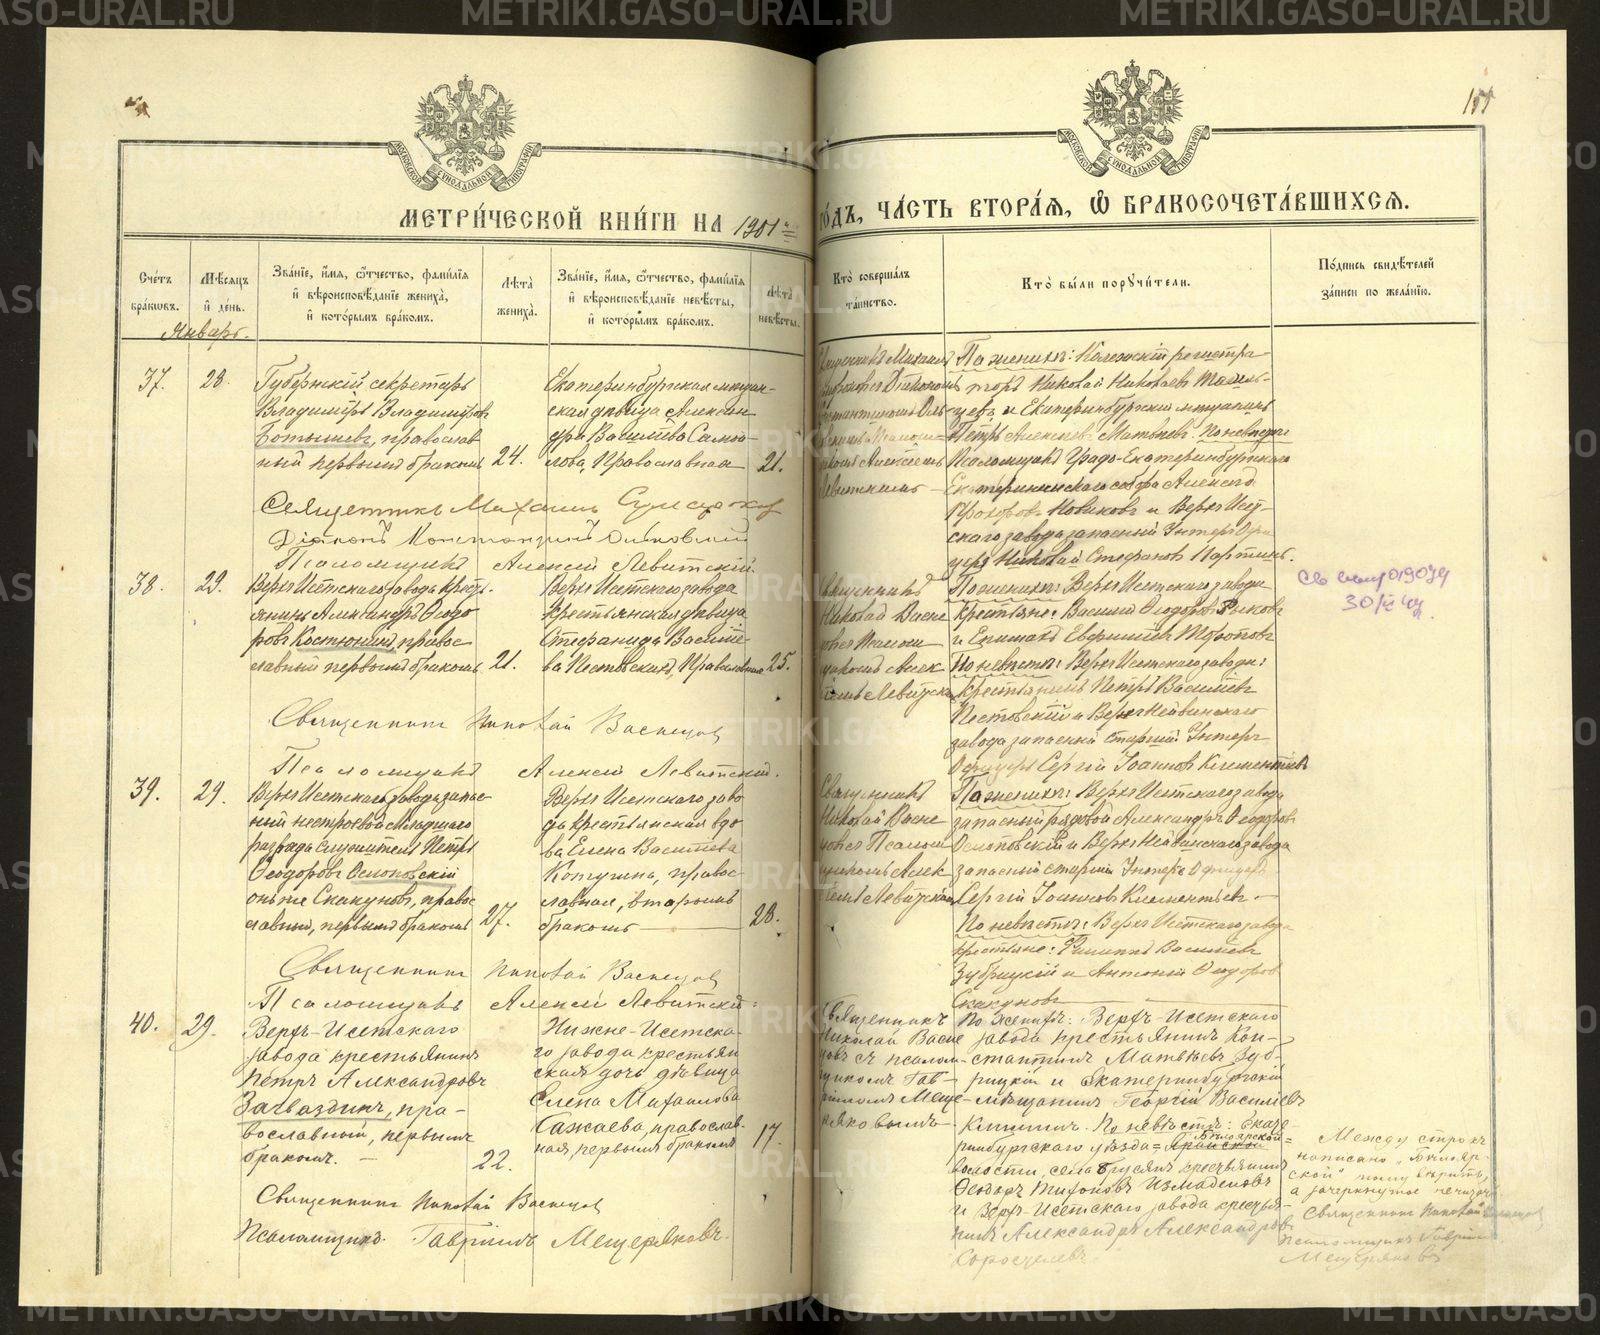 МЕТРИ́ЧЕСКОЙ КНИ́ГИ НА 1901 го́дъ, ЧА́СТЬ ВТОРА́Я, Ѡ БРАКОСОЧЕТА́ВШИХСЯ.
Сче́тъ бра́ковъ.
Мѣ́сяцъ и́ де́нь.
Зва́нїе, и́мя, ѻ́тчество, фами́лїя и́ вѣроисповѣ́данїе жениха̀, и́ кото́рымъ бра́комъ.
Лѣта̀ жениха̀.
Зва́нїе, и́мя, ѻ́тчество, фами́лїя и́ вѣроисповѣ́данїе невѣ́сты, и́ кото́рымъ бра́комъ.
Лѣта̀ невѣ́сты.
Кто̀ соверша́лъ та́инство.
Кто̀ бы́ли поручи́тели.
По́дпись свидѣ́телей за́писи по жела́нїю.
Январь.
37.
28.
Губернскій секретарь
Владиміръ Владиміровъ
Ботышевъ, православ
ный первымъ бракомъ
24.
Екатеринбургская мещан-
ская дѣвица Алексан
дра Васильева Само
лова, Православная
21.
По женихѣ: Коллежскій регистра
торъ Николай Николаевъ
цевъ и Екатеринбургскій мѣщанинъ
Петръ Алексѣевъ Матвѣевъ. По невѣстѣ
Псаломщикъ Градо-Екатеринбургскаго
Екатерининскаго собора Александ
Прохоровъ Новиковъ и Верхъ Исет-
скаго завода запасный Унтеръ Офи
церъ Николай Стефановъ Партинъ.
Священникъ Михаилъ
Діаконъ Константинъ
Псаломщикъ Алексій Левитскій.
38.
29.
Верхъ Исетскаго завода крест.
янинъ Александръ Ѳеодо
ровъ Костюнинъ, правос
лавный первымъ бракомъ
21.
Верхъ Исетскаго завода
крестьянская дѣвица
Стефанида Василье
ва Пестовская, Православная
25.
Священникъ
Николай Васне
цовъ съ Псалом
щикомъ Алек
сѣемъ Левитски
По женихѣ: Верхъ Исетскаго завода
крестьяне: Василій Ѳеодоровъ
и Евфиміевъ
По невѣстѣ: Верхъ Исетскаго завода:
крестьянинъ Петръ Васильевъ
Пестовскій и Верхъ Нейвинскаго
завода запасный старшій Унтеръ
Офицеръ Сергій Іоанновъ Климентьевъ
30/IX 49.
Священникъ Николай Васнецов
Псаломщикъ Алексій Левитскій.
39.
29.
Верхъ Исетскаго завода запас
ный нестроевой младшаго
разряда служитель Петръ
Ѳеодоровъ Осиповскій
онъ же Скакуновъ, правос
лавный, первымъ бракомъ
27.
Верхъ Исетскаго заво
да крестьянская вдо
ва Елена Васильева
Котугина, правос-
лавная, вторымъ
бракомъ
28.
Священникъ
Николай Васне
цовъ съ Псалом
щикомъ Алек
сѣемъ Левитским
По женихѣ: Верхъ Исетскаго завода
запасный рядовой Александръ Ѳеодоровъ
Осиповскій и Верхъ Нейвинскаго завода
запасный старшій Унтеръ Офицеръ
Сергій Іоанновъ Климентьевъ.
По невѣстѣ: Верхъ Исетскаго завода
крестьяне: Филиппъ Васильевъ
Зубрицкій и Антоній Ѳеодоров
Скакуновъ
Священникъ Николай Васнецов
Псаломщикъ Алексій Левитскій.
40.
29.
Верхъ-Исетскаго
завода крестьянинъ
Петръ Александровъ
Загваздинъ, пра-
вославный, первымъ
бракомъ.
22.
Нижне-Исетска-
го завода крестьян
ская дочь дѣвица
Елена Михаилова
Кажаева, православ-
ная, первымъ бракомъ
17.
Священникъ
Николай Васне
цовъ съ псалом-
щикомъ Гав-
ріиломъ Меще-
ряковымъ
По женихѣ: Верхъ-Исетскаго
завода крестьянинъ Кон-
стантинъ Матвѣевъ Зуб-
рицкій и Екатеринбургскій
мѣщанинъ Георгій Васильевъ
По невѣстѣ: Екате-
ринбургскаго уѣзда Бѣлоярской
волости, села Брусянъ крестьянинъ
Ѳеодоръ Тихоновъ Измаденовъ
и Верхъ-Исетскаго завода крестья-
нинъ Александръ Александровъ
Коростелевъ.
Между строкъ
написано „Бѣлояр-
ской" тому вѣрить,
а зачеркнутое нечитать
Священникъ Николай Васнецов
Псаломщикъ Гавріилъ
Мещеряковъ
Священникъ Николай Васнецов
Псаломщикъ Гавріилъ Мещеряковъ.
METRIKI.GASO-URAL.RU